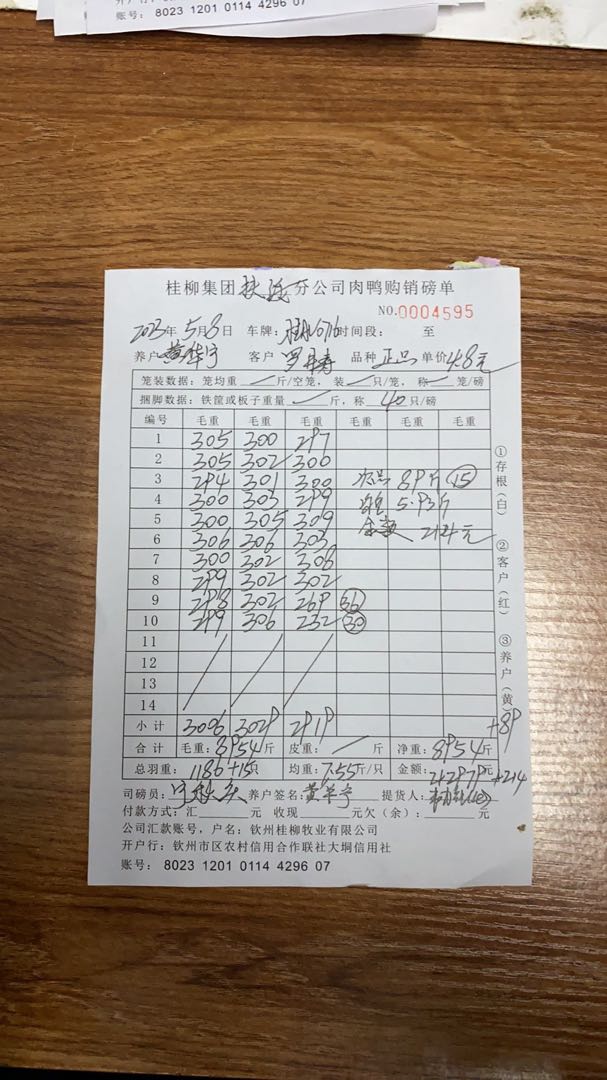 账号： 8023 1201 0114 4296 07
桂柳集团 分公司肉鸭购销磅单
NO.0004595
2023年 5月8日 车牌： 时间段： 至
养户 客户 品种 正品 单价4.8元
笼装数据：笼均重 ／ 斤/空笼，装 ／ 只/笼，称 ／ 笼/磅
捆脚数据：铁筐或板子重量 ／ 斤，称 40 只/磅
编号 毛重 毛重 毛重 毛重 毛重 毛重
1 305 300 297
2 305 302 300
3 294 301 300 次品 89斤 (15)
4 300 303 299 5.93斤
5 300 305 309 214元
6 306 306 303
7 300 302 308
8 299 302 302
9 298 302 269 (36)
10 299 306 232 (30)
11
12
13
14
小计 3006 3029 2919 +89
合计 毛重：8954斤 皮重： ／ 斤 净重：8954斤
总羽重： 1186+15只 均重：7.55斤/只 金额：42979元 +214
司磅员： 养户签名： 提货人：
付款方式：汇 元 收现 元欠（余）： 元
公司汇款账号，户名：钦州桂柳牧业有限公司
开户行：钦州市区农村信用合作联社大垌信用社
账号： 8023 1201 0114 4296 07
①存根（白） ②客户（红） ③养户（黄）